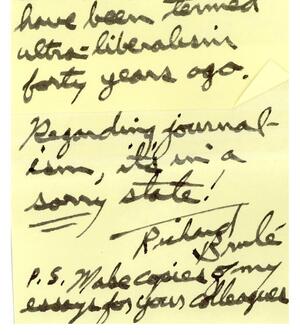 have been termed
ultra-liberalism
forty years ago.
Regarding journal-
ism, it's in a
sorry state!
Richard
Brulé
P.S. Make copies of my
essays for your colleagues